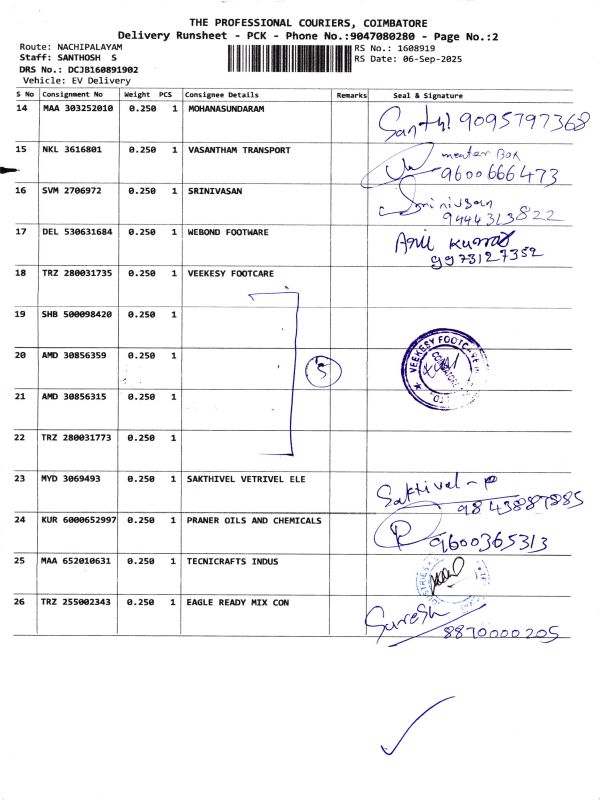 THE PROFESSIONAL COURIERS, COIMBATORE
Delivery Runsheet - PCK - Phone No.:9047080280 - Page No.:2
Route: NACHIPALAYAM RS No.: 1608919
Staff: SANTHOSH S RS Date: 06-Sep-2025
DRS No.: DCJB160891902
Vehicle: EV Delivery
S No Consignment No Weight PCS Consignee Details Remarks Seal & Signature
14 MAA 303252010 0.250 1 MOHANASUNDARAM 9095797368
15 NKL 3616801 0.250 1 VASANTHAM TRANSPORT meater Box
9600666473
16 SVM 2706972 0.250 1 SRINIVASAN Srinivasan
9444313822
17 DEL 530631684 0.250 1 WEBOND FOOTWARE Anil Kumar
9973127352
18 TRZ 280031735 0.250 1 VEEKESY FOOTCARE
19 SHB 500098420 0.250 1
20 AMD 30856359 0.250 1 5 VEEKESY FOOTCARE
21 AMD 30856315 0.250 1
22 TRZ 280031773 0.250 1
23 MYD 3069493 0.250 1 SAKTHIVEL VETRIVEL ELE Sakthivel - P
9843887885
24 KUR 6000652997 0.250 1 PRANER OILS AND CHEMICALS 9600365313
25 MAA 652010631 0.250 1 TECNICRAFTS INDUS
26 TRZ 255002343 0.250 1 EAGLE READY MIX CON Suresh
8870000205